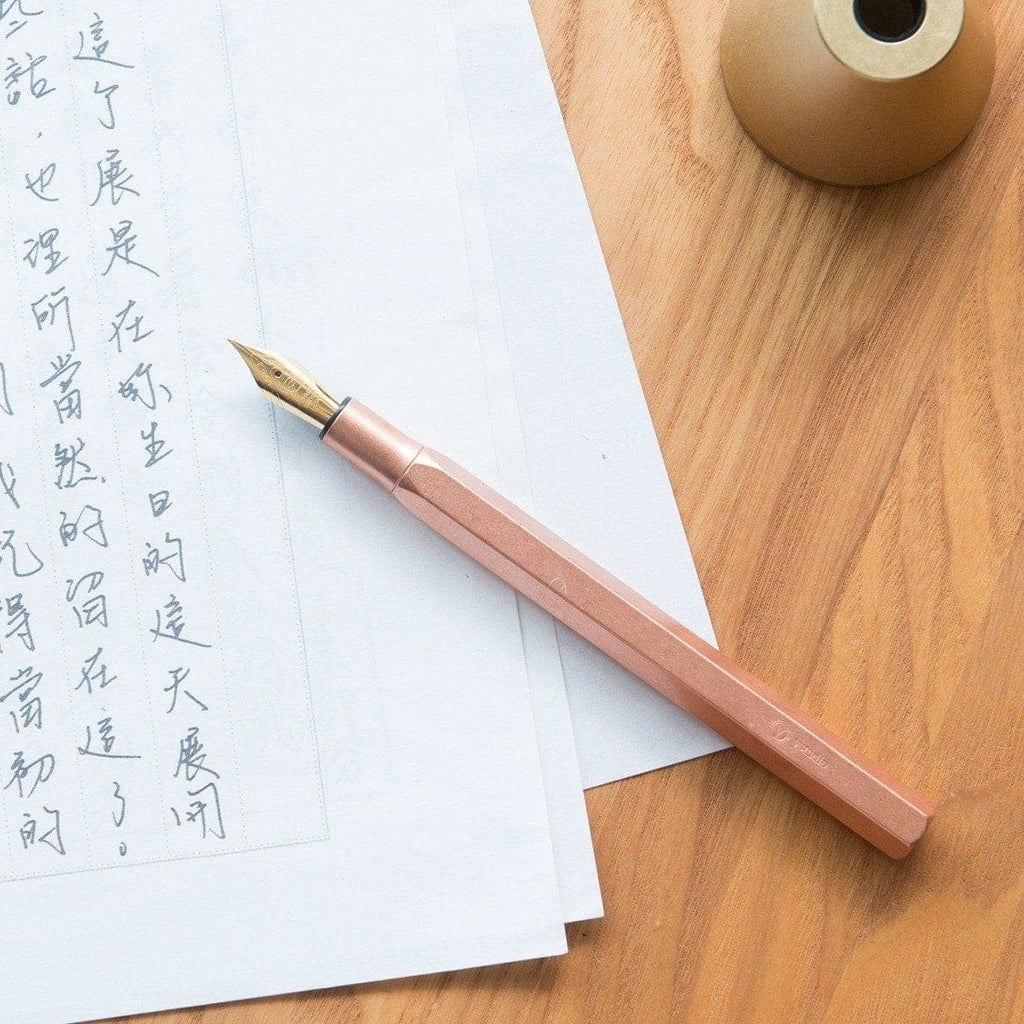 這个展是在妳生日的這天展開
些話，也理所當然的留在這了。
得當初的
ystudio